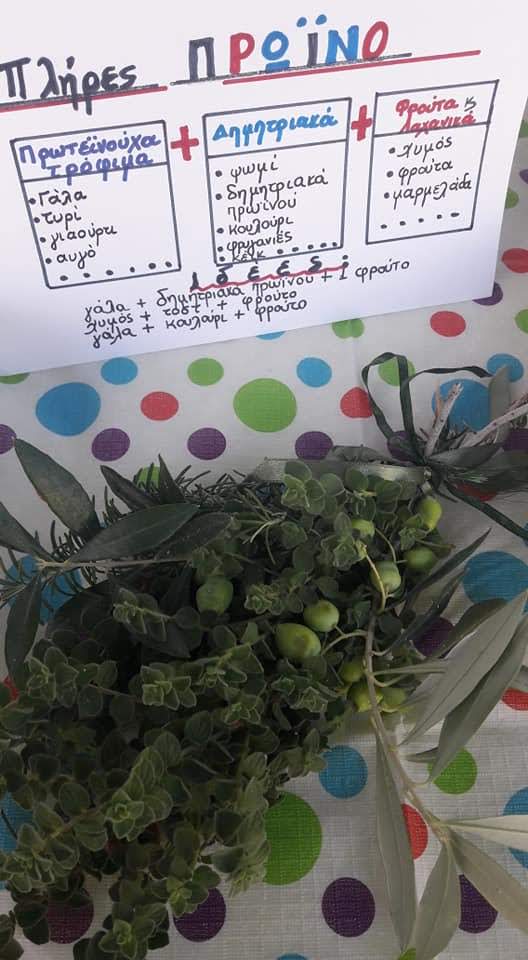 Πλήρες ΠΡΩΪΝΟ
Πρωτεϊνούχα
τρόφιμα
• Γάλα
• τυρί
• γιαούρτι
• αυγό
• • • • • •
+
Δημητριακά
• ψωμί
• δημητριακά
πρωϊνού
• κουλούρι
• φρυγανιές
• κέικ • • • • •
+
Φρούτα κ
Λαχανικά
• χυμός
• φρούτα
• μαρμελάδα
• • • • •
Ιδέες:
γάλα + δημητριακά πρωϊνού + 1 φρούτο
χυμός + τοστ + φρούτο
γάλα + κουλούρι + φρούτο